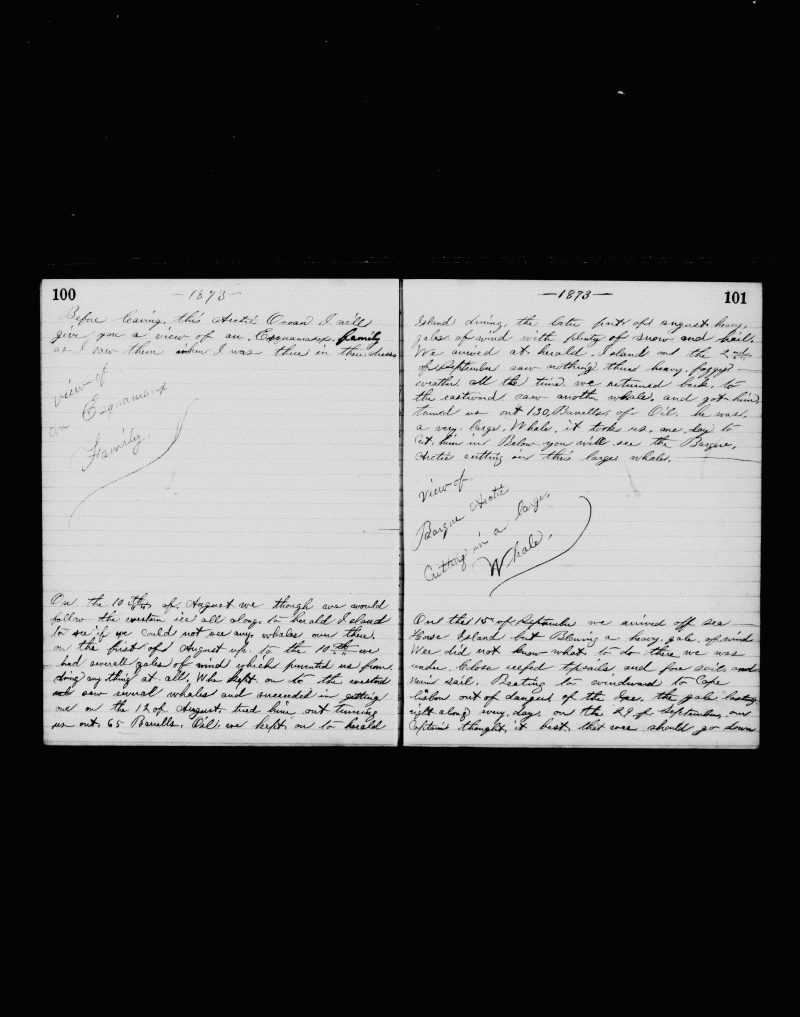 100
—1873—
Before leaving this Arctic Ocean I will
give you a view of an Esquamaux family
as I saw them when I was there in their dress
view of
an Esquamaux
Family
On the 10th of August we though we would
follow the western ice all along to herald Island
to see if we could not see any whales over there.
on the first of August up to the 10th we
had severale gales of wind which prevented us from
doing any thing at all. Whe kept on to the westard
saw several whales and succeeded in getting
one on the 12 of August tried him out turning
us out 65 Barells. Oil we kept on to herald
—1873—
101
Island during the later part of august heavy,
gales of wind with plenty of snow and hail.
We arrived at herald Island on the 2nd
of September saw nothing there heavy foggy
weather all the time we returned back to
the eastward saw another whale and got him
turned us out 130, Barells of Oil. he was,
a very large, Whale. it took us, one day to
Cut him in Below you will see the Barque,
Arctic cutting in this large whale.
View of
Barque Arctic
Cutting in a large,
Whale.
On the 15 of September we arrived off sea
Horse Island but Blowing a heavy gale of wind
Wee did not know what to do there we was
under Close reefed topsails and fore sail and
main sail. Beating to windward to Cape
lisbon out of danger of the Ice. the gale lasting
right along every day. on the 29 of September our
Captain thought it best that wee should go down